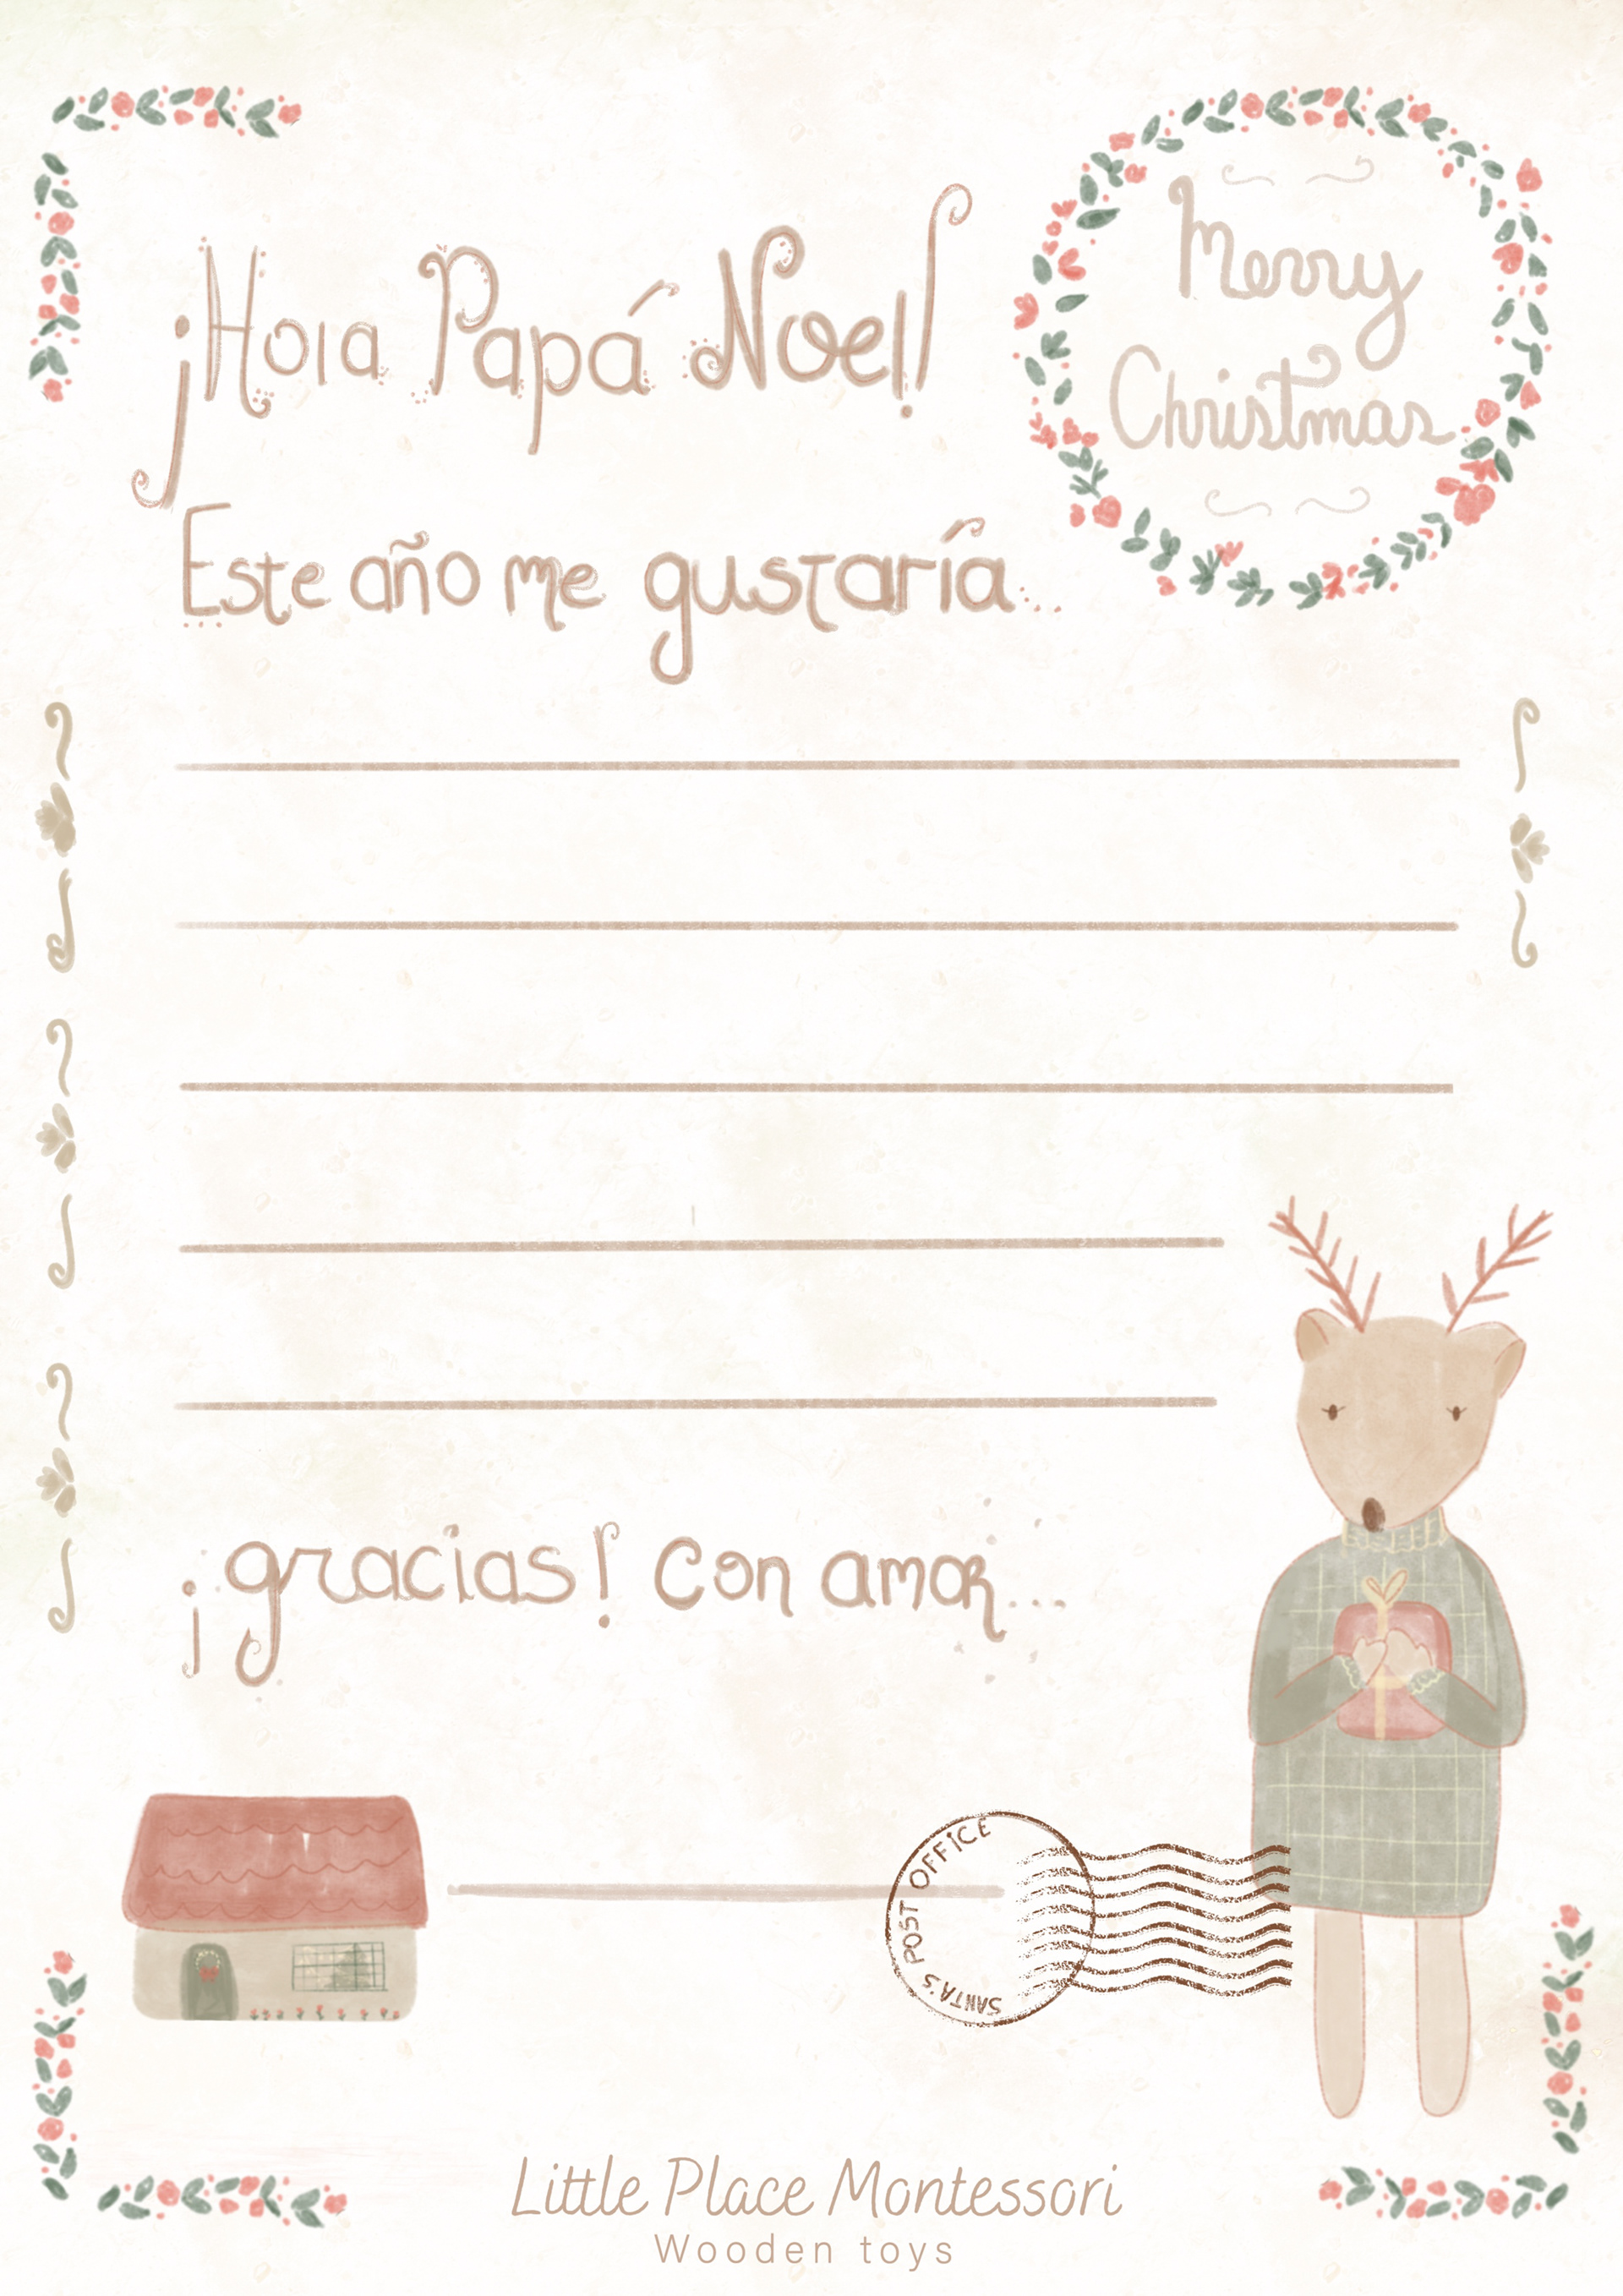 ¡Hola Papá Noel!
Merry
Christmas
Este año me gustaría...
¡gracias! Con amor...
SANTA'S POST OFFICE
Little Place Montessori
Wooden toys